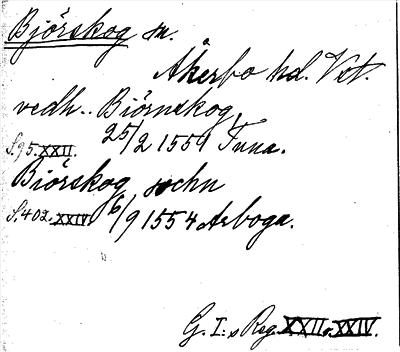 Björskog sn.
Åkerbo hd. Vstm.
vedh.. Biörnskog,
S.95.XXII. 25/2 1551 Tuna.
Biörskog sochn
S.402.XXIV. 6/9 1554 Arboga.
G. I:s Reg. XXII o. XXIV.